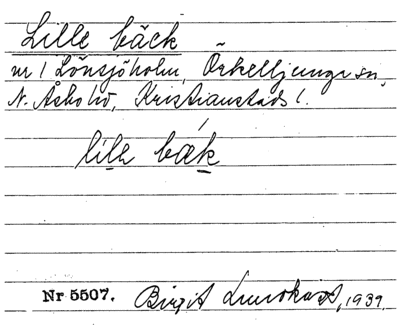 Lille bäck
nr 1 Lönsjöholm, Örkelljunga sn,
N. Åsbo hd, Kristianstads l.
lilə bæk
Nr 5507. Birgit 1939.